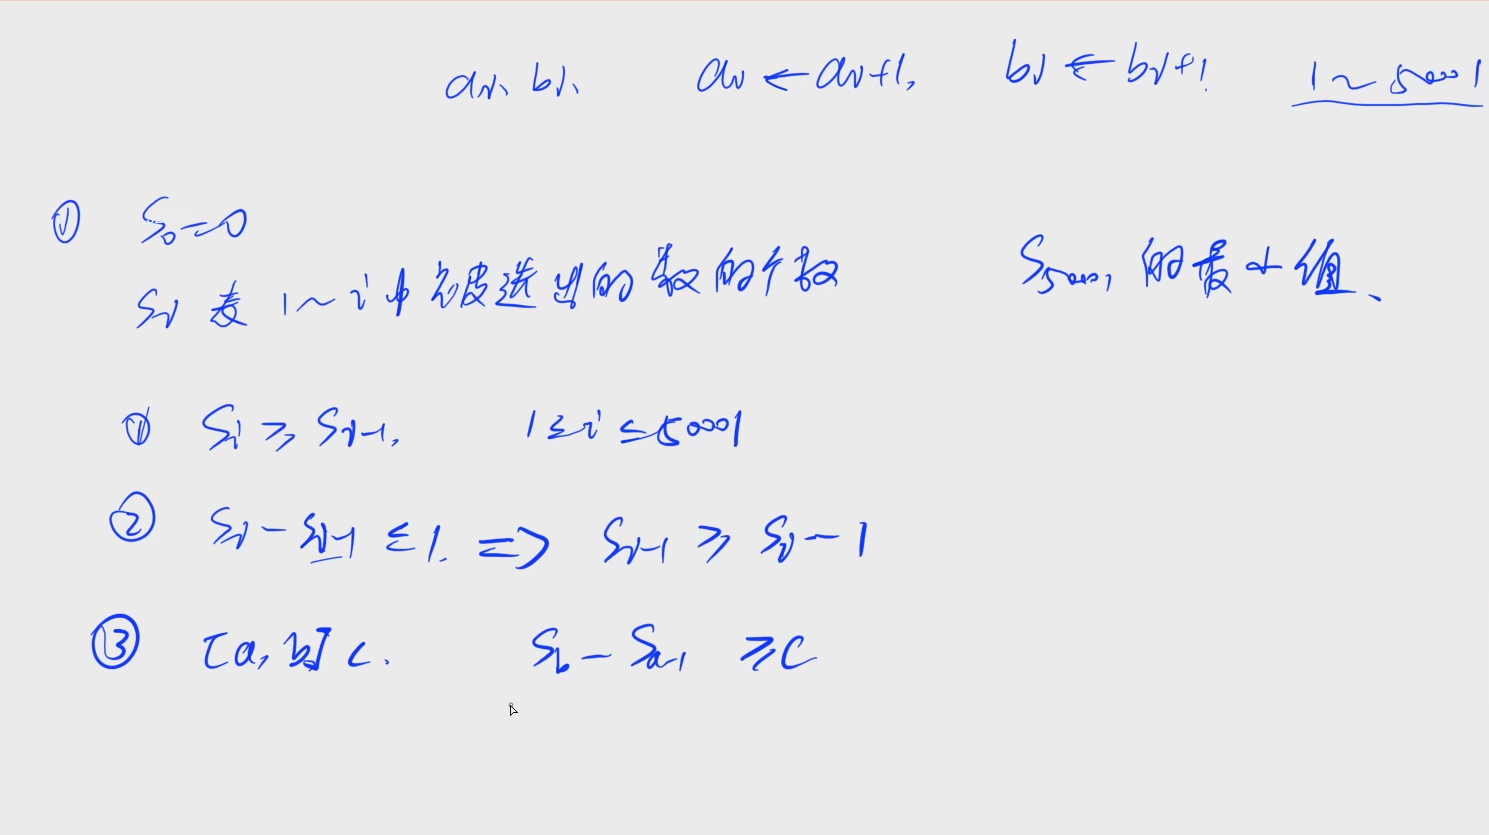 ai、bi、 ai ← ai+1, bi ← bi+1, 1~50001
① S₀=0
Si 表 1~i 中被选出的数的个数 S₅₀₀₀₁ 的最小值、
① Si ≥ Si-1, 1≤i≤50001
② Si - Si-1 ≤ 1. => Si-1 ≥ Si - 1
③ [a, b] c. Sb - Sa-1 ≥ C